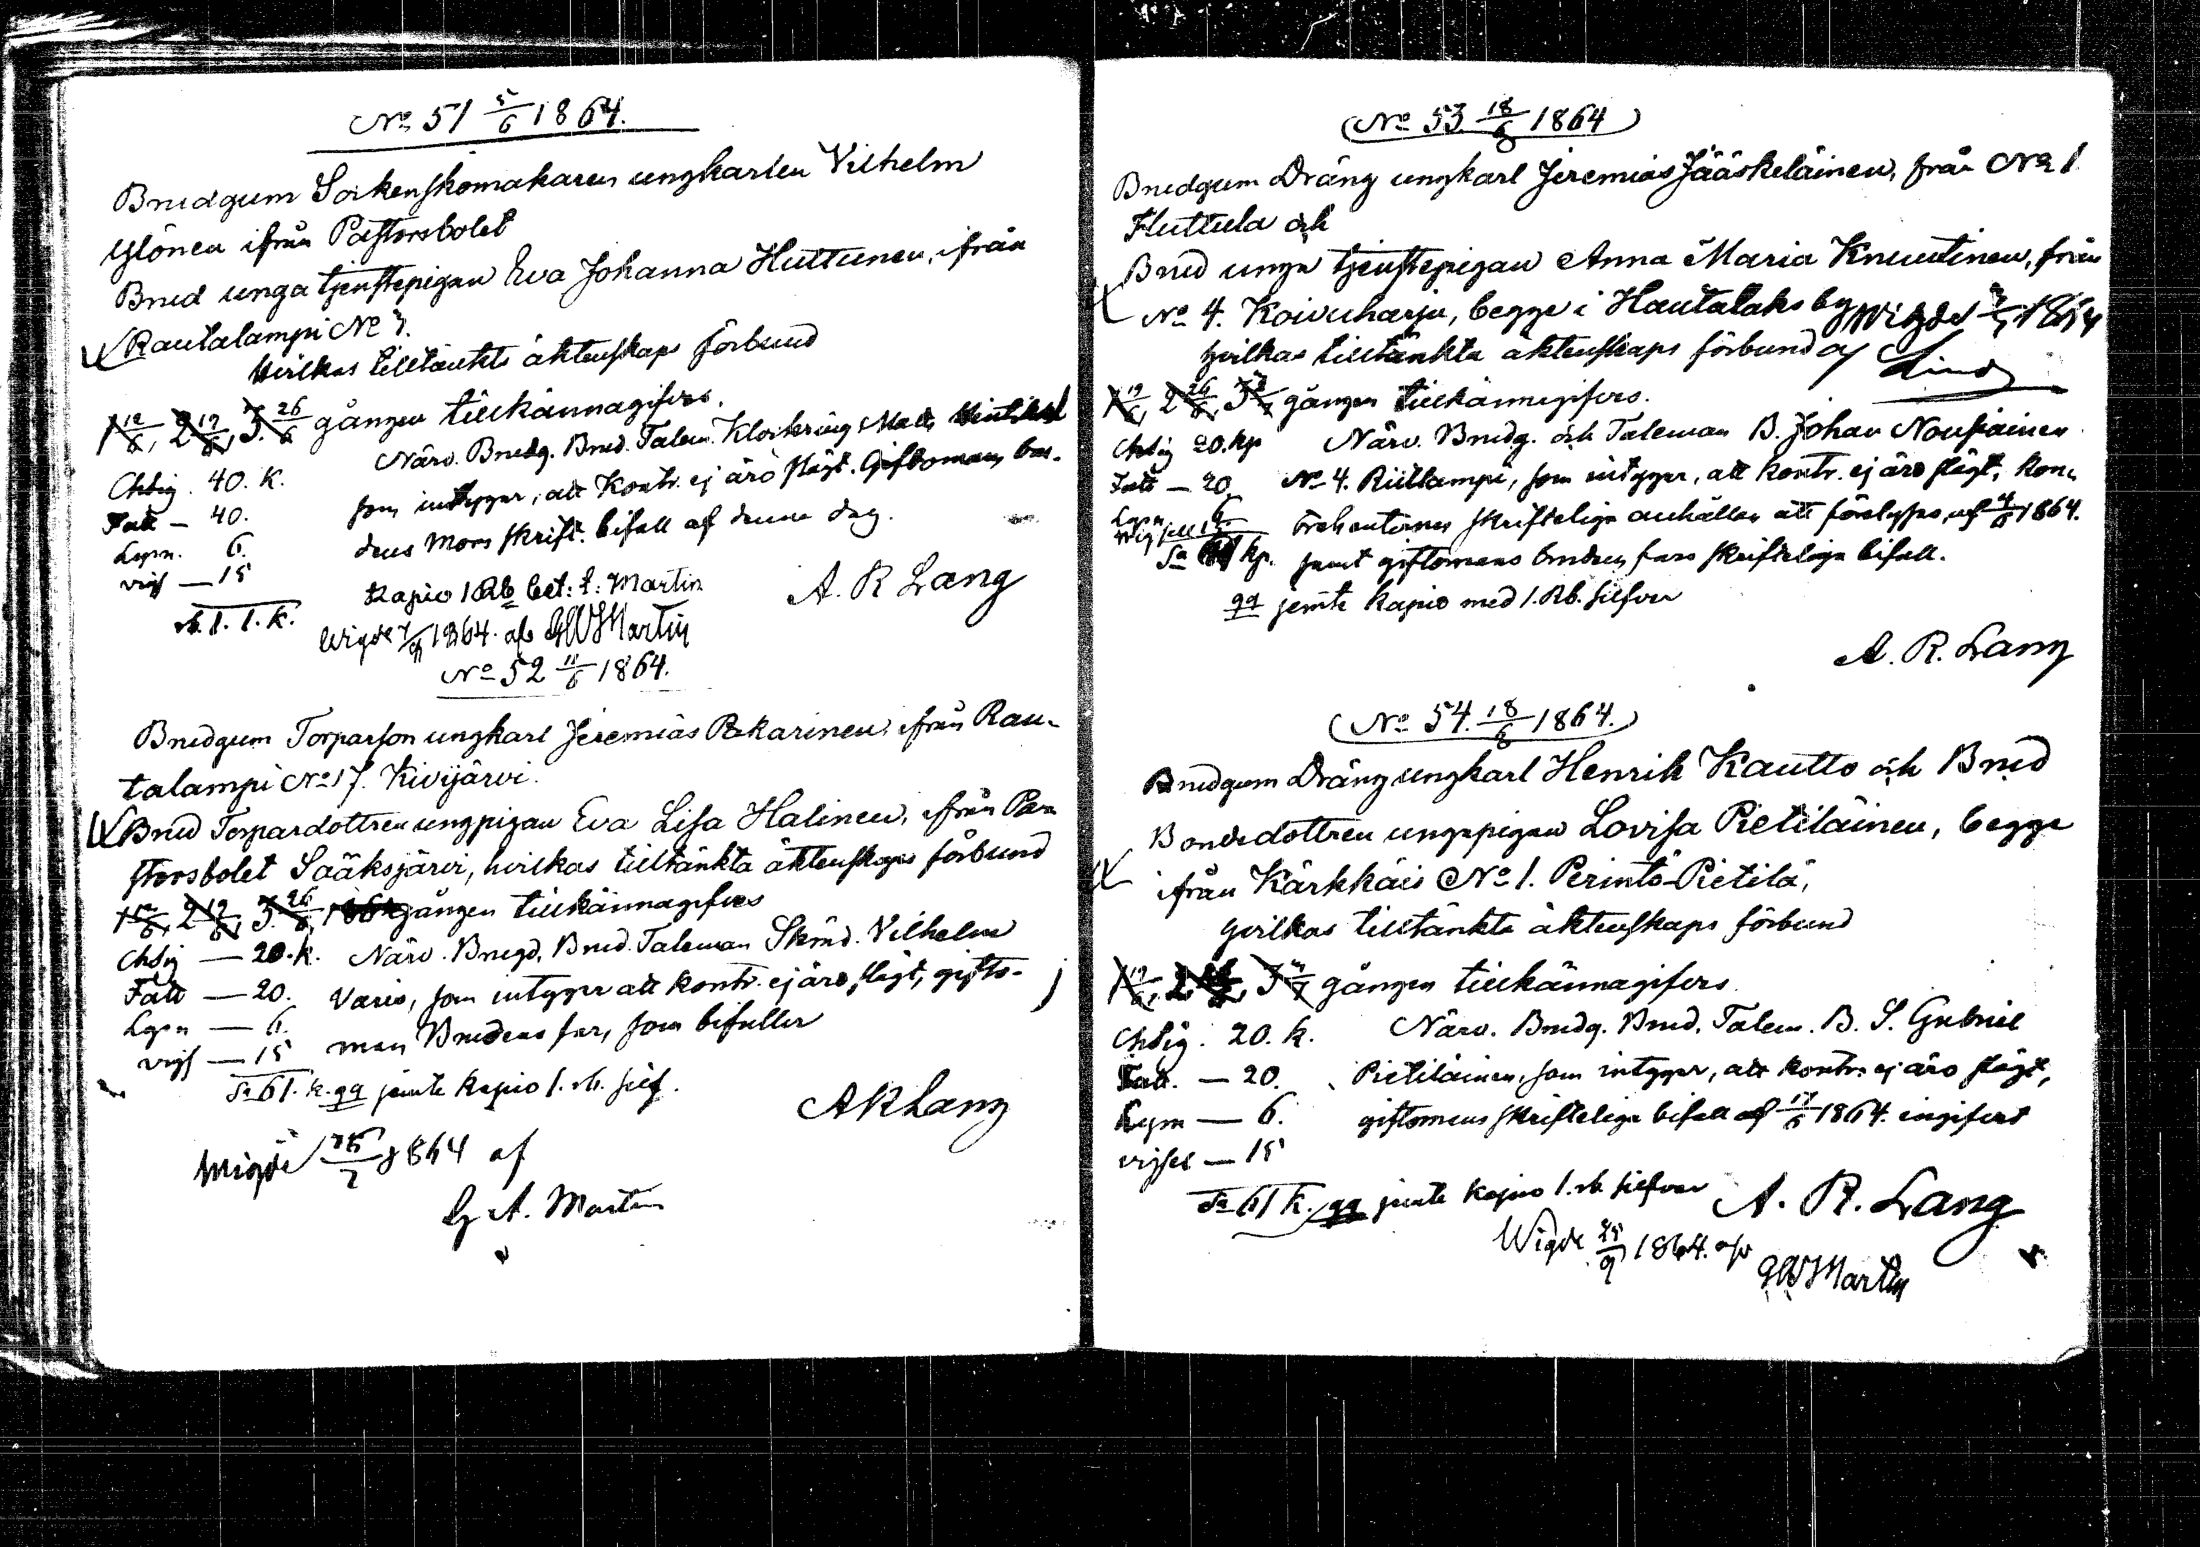 No 51 5/6 1864.
Brudgum Sockenskomakaren ungkarlen Vilhelm
Ylönen ifrån Pastorsbolet
Brud unga tjenstepigan Eva Johanna Huttunen, ifrån
Rautalampi No 7.
hvilkas tilltänkta äktenskaps förbund
1 12/6, 2 19/6, 3. 26/6 gången tillkännagifves.
Närv. Brudg. Brud. Talem. Klockring Matts
Chsig. 40. k.
som intygar, att Kontr. ej äro slägt. Giftoman, bru-
Fatt — 40.
dens Mors skrift. bifall af denna dag.
Lysn. 6.
vigs — 15
Kapio 1 Rb bet: t: Martin
A. R Lang
rb. 1. 1. k.
Wigde 1864. af GW Martin
No 52 11/6 1864.
Brudgum Torparson ungkarl Jeremias Pekarinen, ifrån Rau-
talampi No 17. Kivijärvi.
Brud Torpardottren ungpigan Eva Lisa Halinen, ifrån Pa-
storsbolet Sääksjärvi, hvilkas tilltänkta äktenskaps förbund
1 12/6, 2 19/6, 3. 26/6, 1864 gången tillkännagifves
Chsig — 20. k. Närv. Brugd, Brud. Taleman Skräd. Vilhelm
Fatt — 20. Varis, som intygar att kontr. ej äro slägt, gifto-
Lysn — 6. man Brudens far, som bifaller
vigs — 15
Sa 61. k. qq jemte kapio 1. rb. silf.
AR Lang
Wigde 1864 af
G A. Martin
No 53 18/6 1864
Brudgum Dräng ungkarl Jeremias Jääskeläinen, från No 1
Huttula och
Brud unga tjenstepigan Anna Maria Knuutinen, från
No 4. Koivuharju, begge i Hautalaks by Wigde 1864
hvilkas tilltänkta äktenskaps förbund af Lind
1 19/6, 2 26/6, 3 3/7 gången tillkännagifves.
Chsig 20. kp Närv. Brudg. och Taleman B. Johan Noupiainen
Fatt — 20 No 4. Riitlampi, som intygar, att kontr. ej äro slägt, Kon-
Lysn 6. trahenternes skrifteliga anhållan att förelysas, af 4/6 1864.
Wigsell 15
Sa 61 kp. samt giftomans brudens fars skrifteliga bifall.
qq jemte kapio med 1. Rb. silfver
A. R. Lang
No 54. 18/6 1864.
Brudgum Dräng ungkarl Henrik Kautto och Brud
Bondedottren ungapigan Lovisa Pietiläinen, begge
ifrån Kärkkäis No 1. Perintö-Pietilä,
hvilkas tilltänkta äktenskaps förbund
1 19/6, 2 26/6, 3 3/7 gången tillkännagifves.
Chsig. 20. k. Närv. Brudg. Brud. Talem. B. S. Gabriel
Fatt. — 20. Pietiläinen, som intygar, att kontr. ej äro slägt,
Lysn — 6. giftomans skrifteliga bifall af 17/6 1864. ingifvet
vigsel — 15
Sa 61 k. qq jemte kapio 1. rb silfver A. R. Lang
Wigde 25/9 1864. af
GW Martin